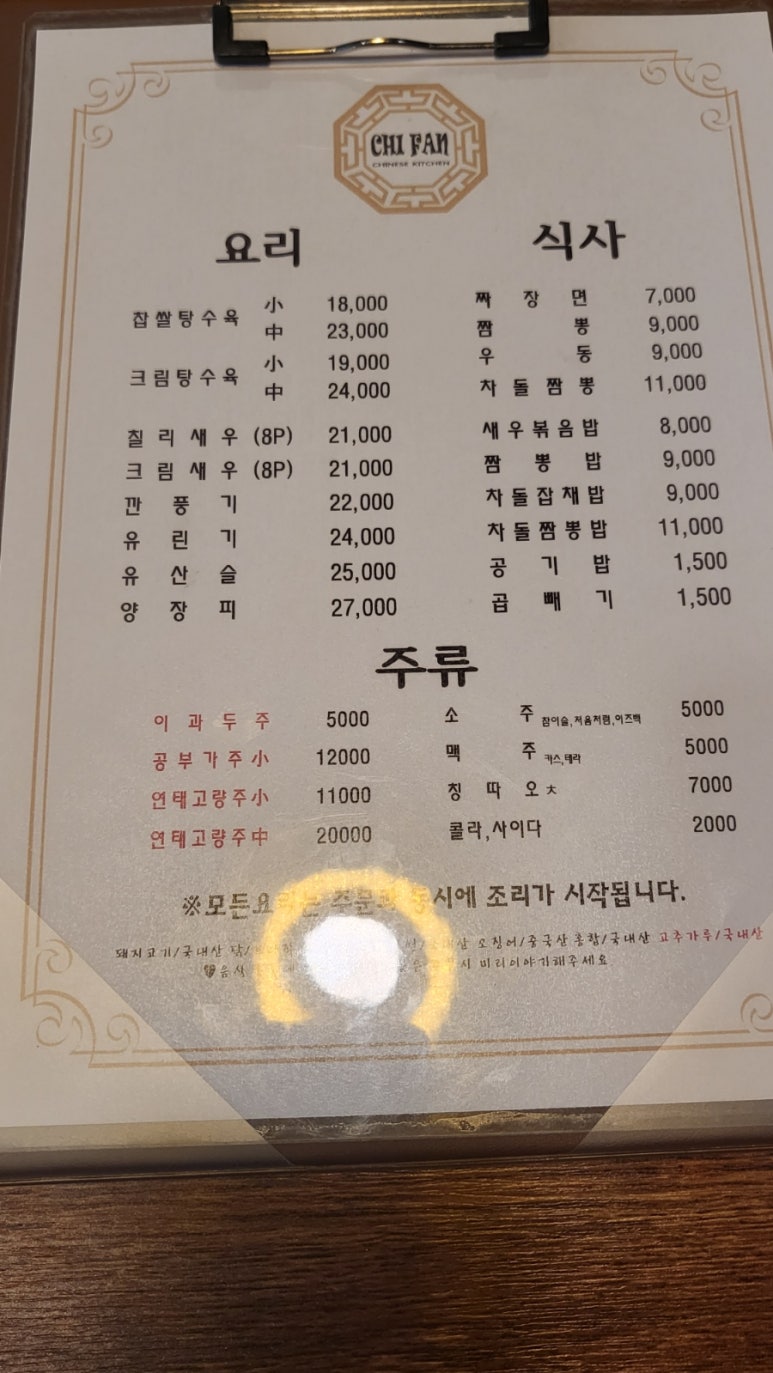 CHI FAN
CHINESE KITCHEN
요리
찹쌀탕수육 小 18,000
中 23,000
크림탕수육 小 19,000
中 24,000
칠리새우 (8P) 21,000
크림새우 (8P) 21,000
깐풍기 22,000
유린기 24,000
유산슬 25,000
양장피 27,000
식사
짜장면 7,000
짬뽕 9,000
우동 9,000
차돌짬뽕 11,000
새우볶음밥 8,000
짬뽕밥 9,000
차돌잡채밥 9,000
차돌짬뽕밥 11,000
공기밥 1,500
곱빼기 1,500
주류
이과두주 5000
공부가주小 12000
연태고량주小 11000
연태고량주中 20000
소주 참이슬,처음처럼,이즈백 5000
맥주 카스,테라 5000
칭따오大 7000
콜라,사이다 2000
※모든요리는 주문과 동시에 조리가 시작됩니다.
돼지고기/국내산 닭/ 오징어/중국산 홍합/국내산 고추가루/국내산
음식 시 미리이야기해주세요